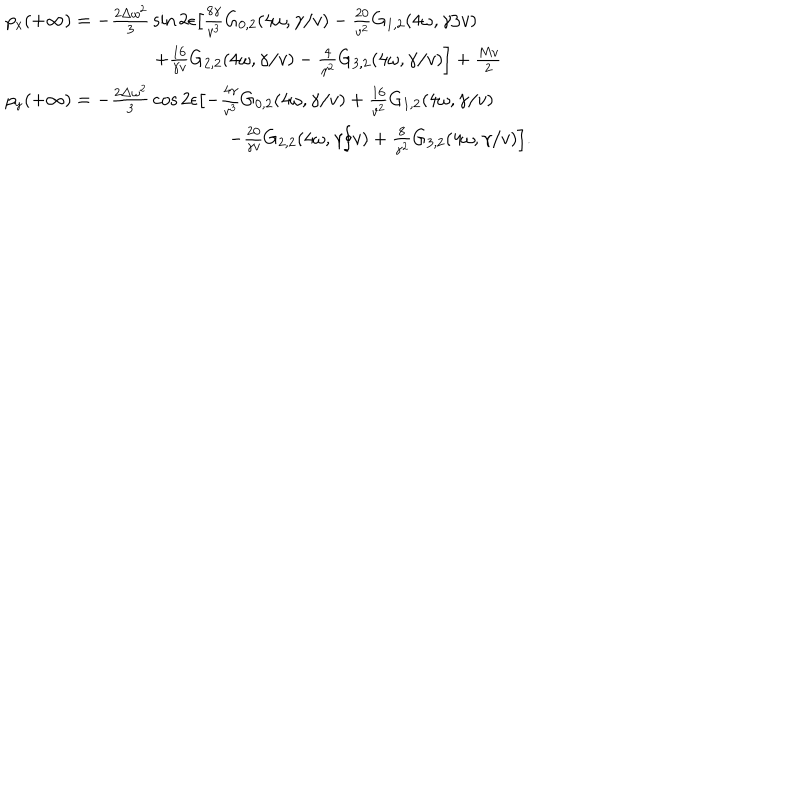 p_x(+∞) = −\frac{2Δω^2}{3} sin 2ϵ[\frac{8γ}{v^3}G_{0,2}(4ω, γ/v) − \frac{20}{v^2}G_{1,2}(4ω, γ3v)
+\frac{16}{γv}G_{2,2}(4ω, γ/v) − \frac{4}{γ^2}G_{3,2}(4ω, γ/v)] + \frac{Mv}{2}
p_y(+∞) = −\frac{2Δω^2}{3} cos 2ϵ[−\frac{4γ}{v^3}G_{0,2}(4ω, γ/v) + \frac{16}{v^2}G_{1,2}(4ω, γ/v)
−\frac{20}{γv}G_{2,2}(4ω, γ∮v) + \frac{8}{γ^2}G_{3,2}(4ω, γ/v)].